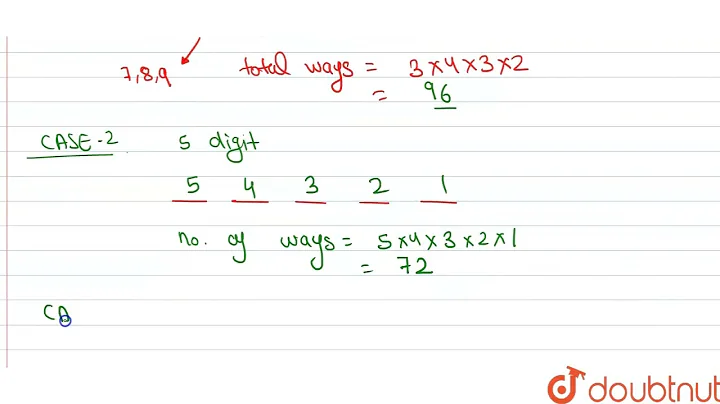 7,8,9 total ways = 3×4×3×2
= 96
CASE-2 5 digit
5 4 3 2 1
no. of ways = 5×4×3×2×1
= 72
CA
doubtnut